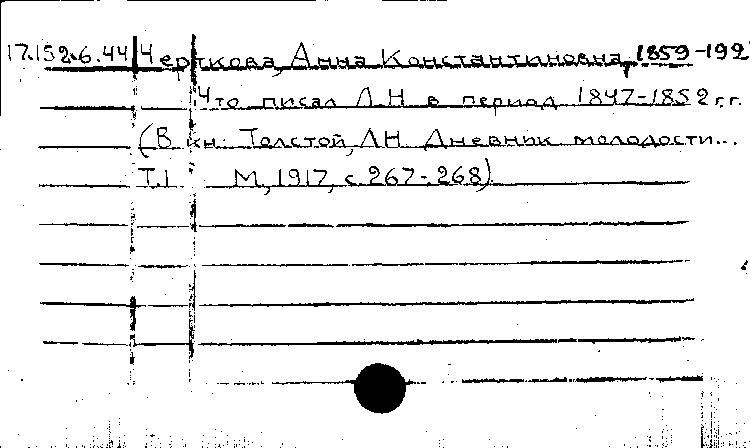 17.152.6.44 Черткова, Анна Константиновна, 1859-192
Что писал Л.Н в период 1847-1852 г.г.
(В кн: Толстой, Л.Н. Дневник молодости...
Т.1 М, 1917, с. 267-268)